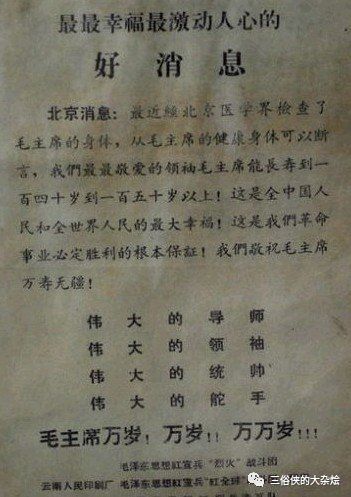 最最幸福最激动人心的
好消息
北京消息：最近經北京医学界檢查了
毛主席的身体，从毛主席的健康身体可以断
言，我們最最敬爱的領袖毛主席能長寿到一
百四十岁到一百五十岁以上！这是全中国人
民和全世界人民的最大幸福！这是我們革命
事业必定胜利的根本保証！我們敬祝毛主席
万寿无疆！
伟大的导师
伟大的領袖
伟大的統帅
伟大的舵手
毛主席万岁！万岁！！万万岁！！！
毛泽东思想紅宣兵“烈火”战斗团
云南人民印刷厂 毛泽东思想紅宣兵“紅全球”
三俗侠的大杂烩